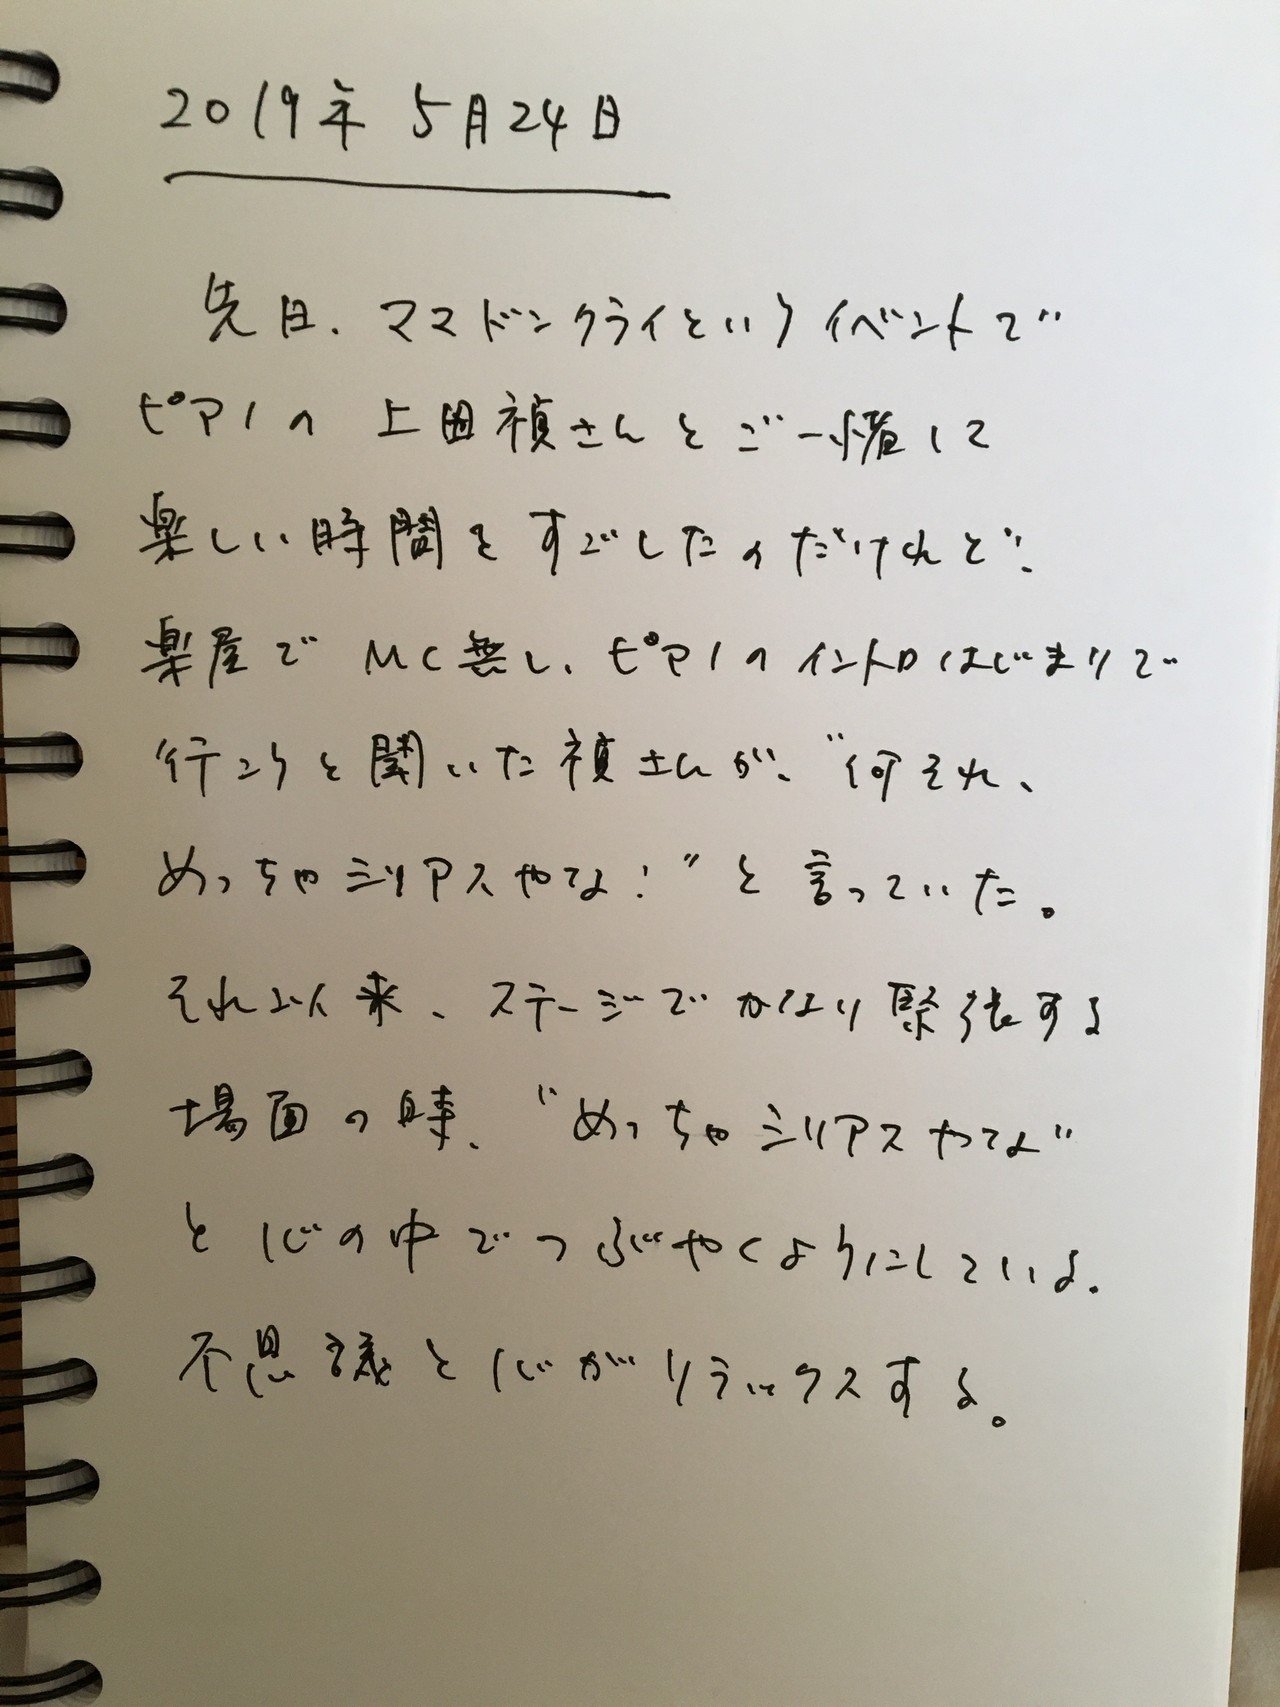 2019年 5月24日
先日、ママドンクライというイベントで
ピアノの 上田禎さんとご一緒して
楽しい時間をすごしたのだけれど、
楽屋でMC無し、ピアノのイントロはじまりで
行こうと聞いた禎さんが、“何それ、
めっちゃシリアスやな！”と言っていた。
それ以来、ステージでかなり緊張する
場面の時、“めっちゃシリアスやな”
と心の中でつぶやくようにしている。
不思議と心がリラックスする。